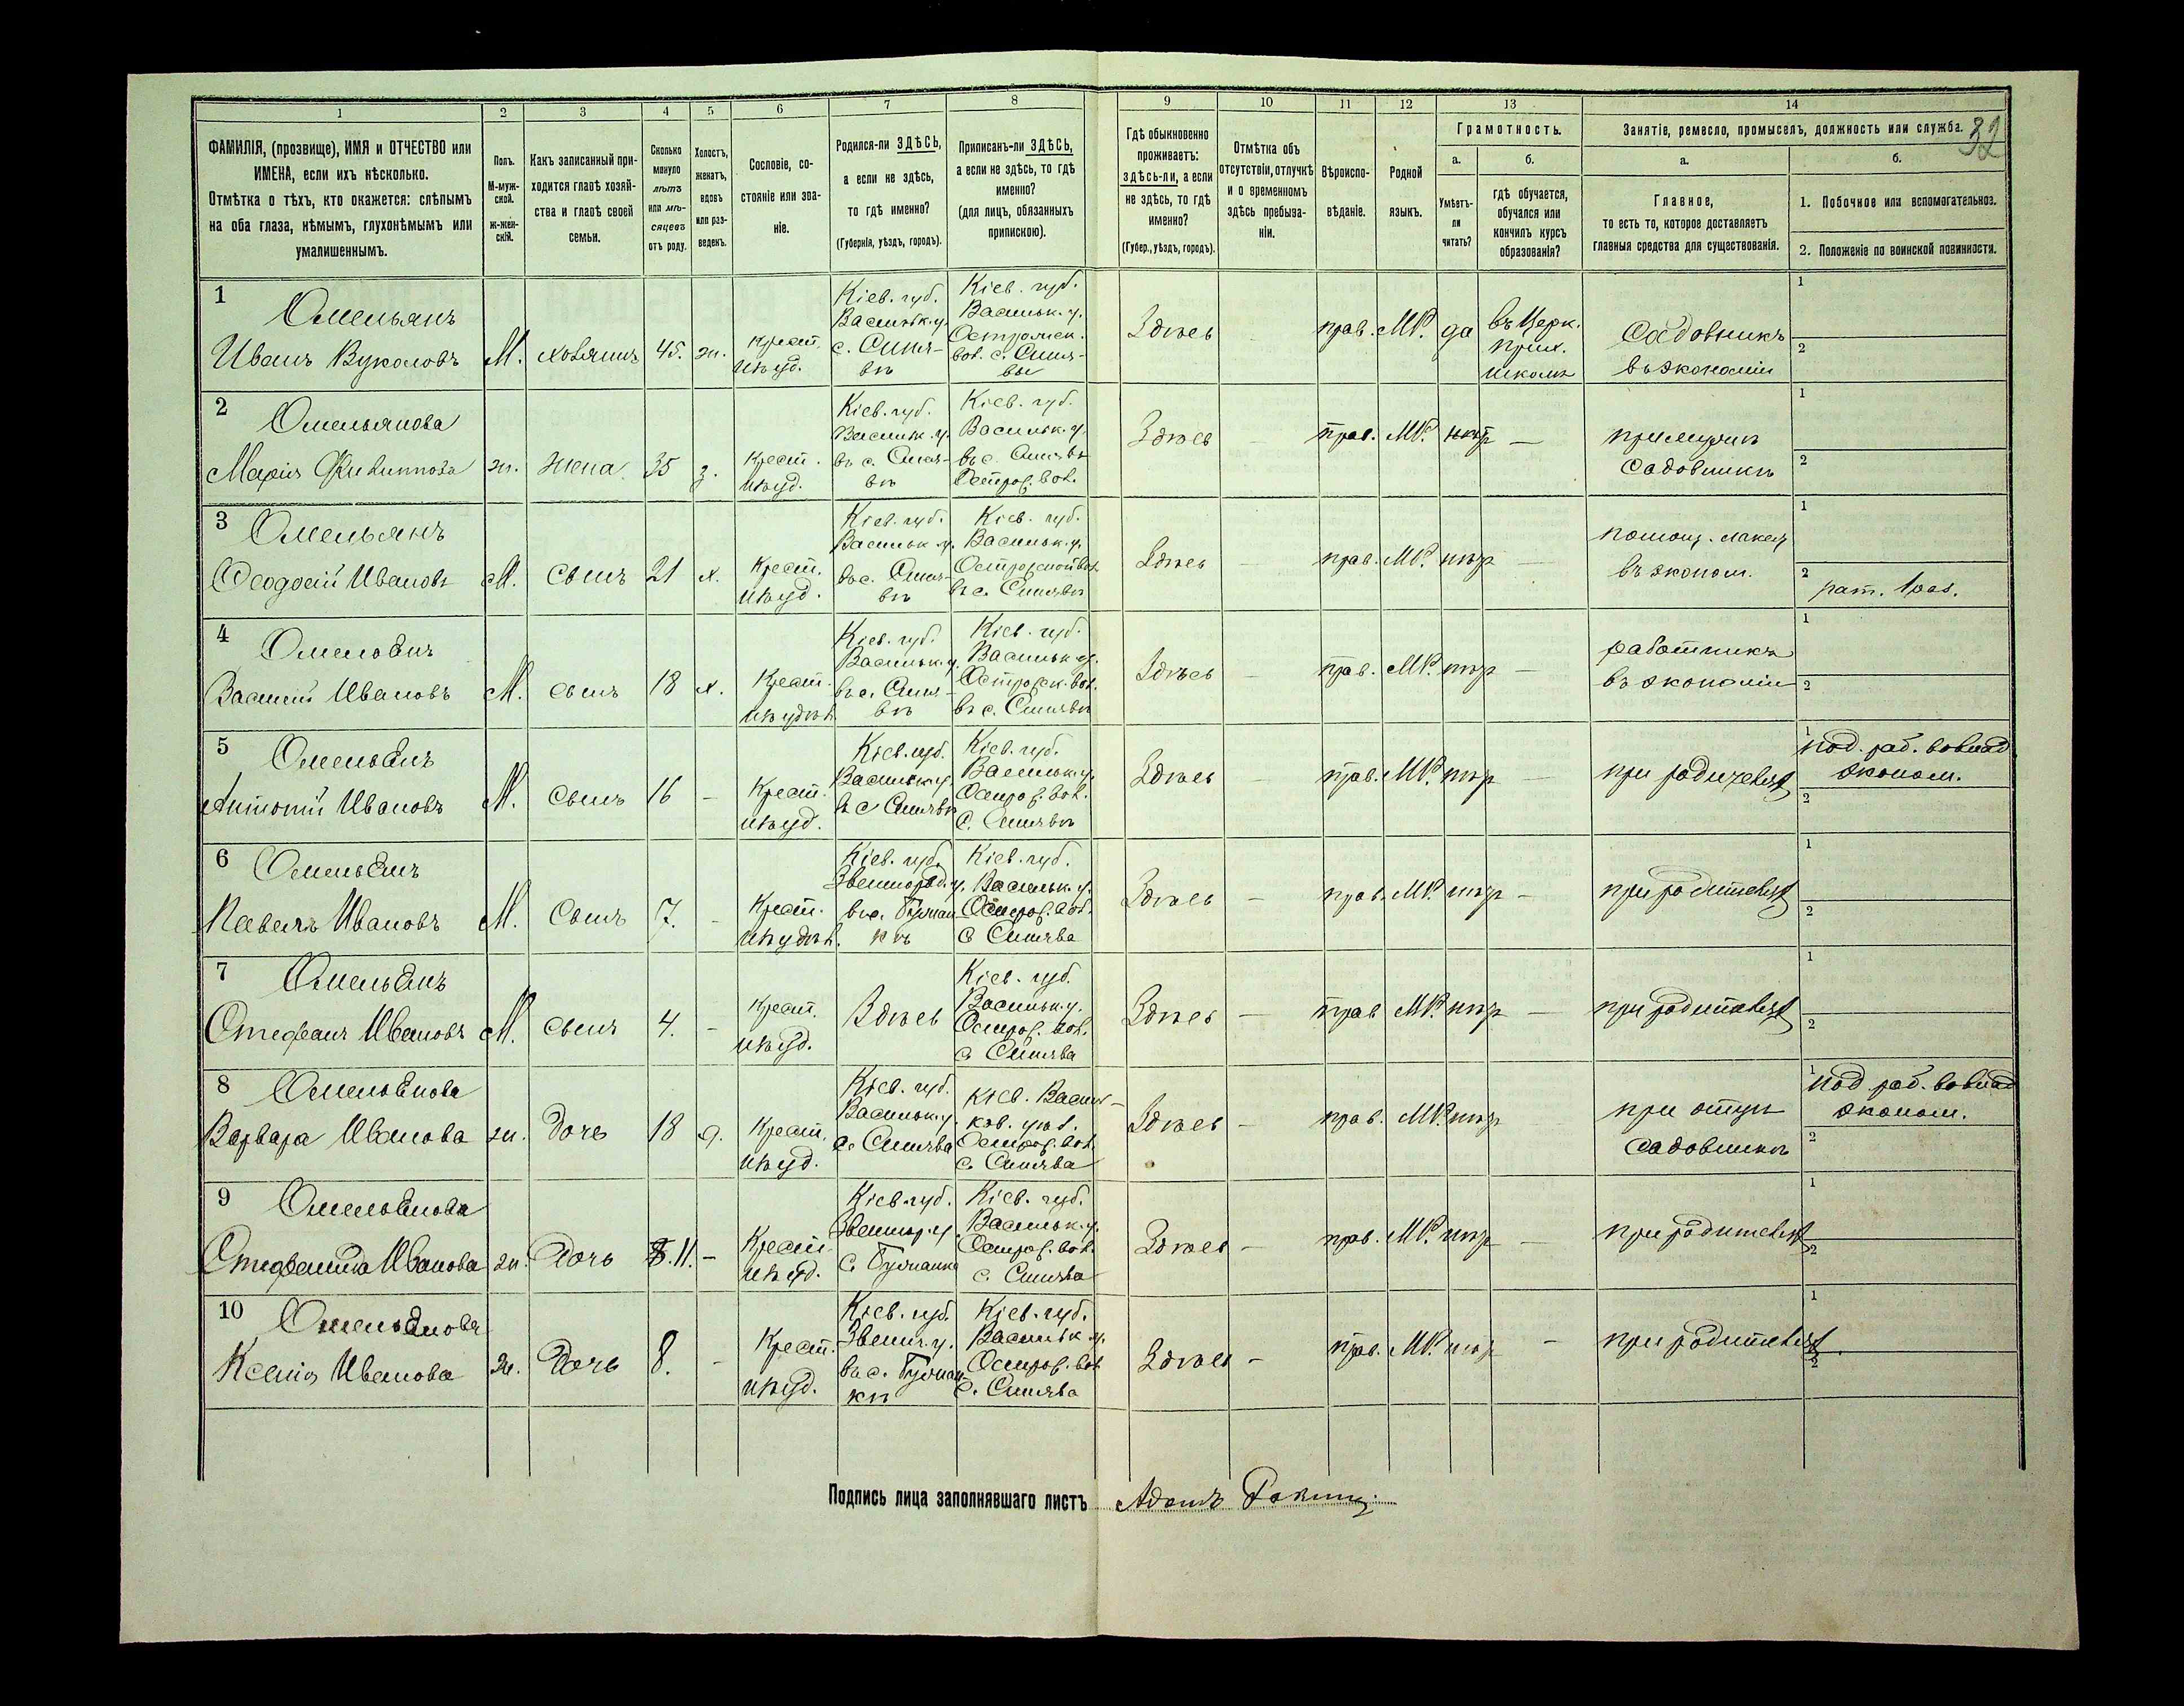 1 2 3 4 5 6 7 8 9 10 11 12 13 14
32
ФАМИЛІЯ, (прозвище), ИМЯ и ОТЧЕСТВО или
ИМЕНА, если ихъ нѣсколько.
Отмѣтка о тѣхъ, кто окажется: слѣпымъ
на оба глаза, нѣмымъ, глухонѣмымъ или
умалишеннымъ.
Полъ.
М-муж-
ской.
ж-жен-
скій.
Какъ записанный при-
ходится главѣ хозяй-
ства и главѣ своей
семьи.
Сколько
минуло
лѣтъ
или мѣ-
сяцевъ
отъ роду.
Холостъ,
женатъ,
вдовъ
или раз-
веденъ.
Сословіе, со-
стояніе или зва-
ніе.
Родился-ли ЗДѢСЬ,
а если не здѣсь,
то гдѣ именно?
(Губернія, уѣздъ, городъ).
Приписанъ-ли ЗДѢСЬ,
а если не здѣсь, то гдѣ
именно?
(для лицъ, обязанныхъ
припискою).
Гдѣ обыкновенно
проживаетъ:
здѣсь-ли, а если
не здѣсь, то гдѣ
именно?
(Губер., уѣздъ, городъ).
Отмѣтка объ
отсутствіи, отлучкѣ
и о временномъ
здѣсь пребыва-
ніи.
Вѣроиспо-
вѣданіе.
Родной
языкъ.
Грамотность.
а.
Умѣетъ-
ли
читать?
б.
гдѣ обучается,
обучался или
кончилъ курсъ
образованія?
Занятіе, ремесло, промыселъ, должность или служба.
а.
Главное,
то есть то, которое доставляетъ
главныя средства для существованія.
б.
1. Побочное или вспомогательное.
2. Положеніе по воинской повинности.
1
Омельянъ
Иванъ Вуколовъ
М.
хозяинъ
45.
ж.
крест.
Кіев. губ.
Васильк. у.
с. Синя-
вѣ
Кіев. губ.
Васильк. у.
вол. с. Синя-
вы
Здѣсь
прав.
МР.
да
въ Церк.
прих.
школѣ
Садовникъ
въ экономіи
1
2
2
Омельянова
Марія Филиппова
ж.
жена
35
з.
крест.
Кіев. губ.
Васильк. у.
въ с. Синя-
вѣ
Кіев. губ.
Васильк. у.
въ с. Синявѣ
Остров. вол.
Здѣсь
—
прав.
МР.
нѣтъ
—
при мужѣ
садовникѣ
1
2
3
Омельянъ
Ѳеодосій Ивановъ
М.
сынъ
21
х.
Крест.
Кіев. губ.
Васильк. у.
въ с. Синя-
вѣ
Кіев. губ.
Васильк. у.
въ с. Синявѣ
Здѣсь
—
прав.
МР.
нѣт
—
помощ. лакея
въ эконом.
1
2
рат. 1 раз.
4
Омельянъ
Василій Ивановъ
М.
сынъ
18
х.
Крест.
Кіев. губ.
Васильк. у.
въ с. Синя-
вѣ
Кіев. губ.
Васильк. у.
въ с. Синявѣ
Здѣсь
—
прав.
МР.
нѣт
—
работникъ
въ экономіи
1
2
5
Омельянъ
Антоній Ивановъ
М.
сынъ
16
—
Крест.
Кіев. губ.
Васильк. у.
въ с Синявѣ
Кіев. губ.
Васильк. у.
Остров. вол.
с. Синявѣ
Здѣсь
—
прав.
МР.
нѣт
—
1
эконом.
2
6
Омельянъ
Павелъ Ивановъ
М.
Сынъ
7.
—
Крест.
Кіев. губ.
Звенигород. у.
Кіев. губ.
Васильк. у.
Остров. вол.
с Синява
Здѣсь
—
прав.
МР.
нѣт
—
при родителях
1
2
7
Омельянъ
Стефанъ Ивановъ
М.
сынъ
4.
—
Крест.
Здѣсь
Кіев. губ.
Васильк. у.
Остров. вол.
с Синява
Здѣсь
—
прав
МР.
нѣт
—
при родителях
1
2
8
Омельянова
Варвара Иванова
ж.
дочь
18
д.
Крест.
Кіев. губ.
Васильк. у.
с. Синява
Кіев. Василь-
ков. уѣз.
Остров. вол.
с Синява
Здѣсь
—
прав.
МР.
нѣт
при отцѣ
садовникѣ
1
эконом.
2
9
Омельянова
Стефанида Иванова
ж.
Дочь
11.
—
Крест.
Кіев. губ.
Звениг. у.
Кіев. губ.
Васильк. у.
Остров. вол.
с. Синява
Здѣсь
—
прав.
МР.
нѣт
—
при родителях
1
2
10
Омельянова
Ксенія Иванова
ж.
Дочь
8.
—
Крест.
Кіев. губ.
Звениг. у.
Кіев. губ.
Васильк у.
Остров. вол
с. Синява
Здѣсь
—
прав.
МР.
нѣт
—
при родителях
1
2
Подпись лица заполнявшаго листъ
Адамъ